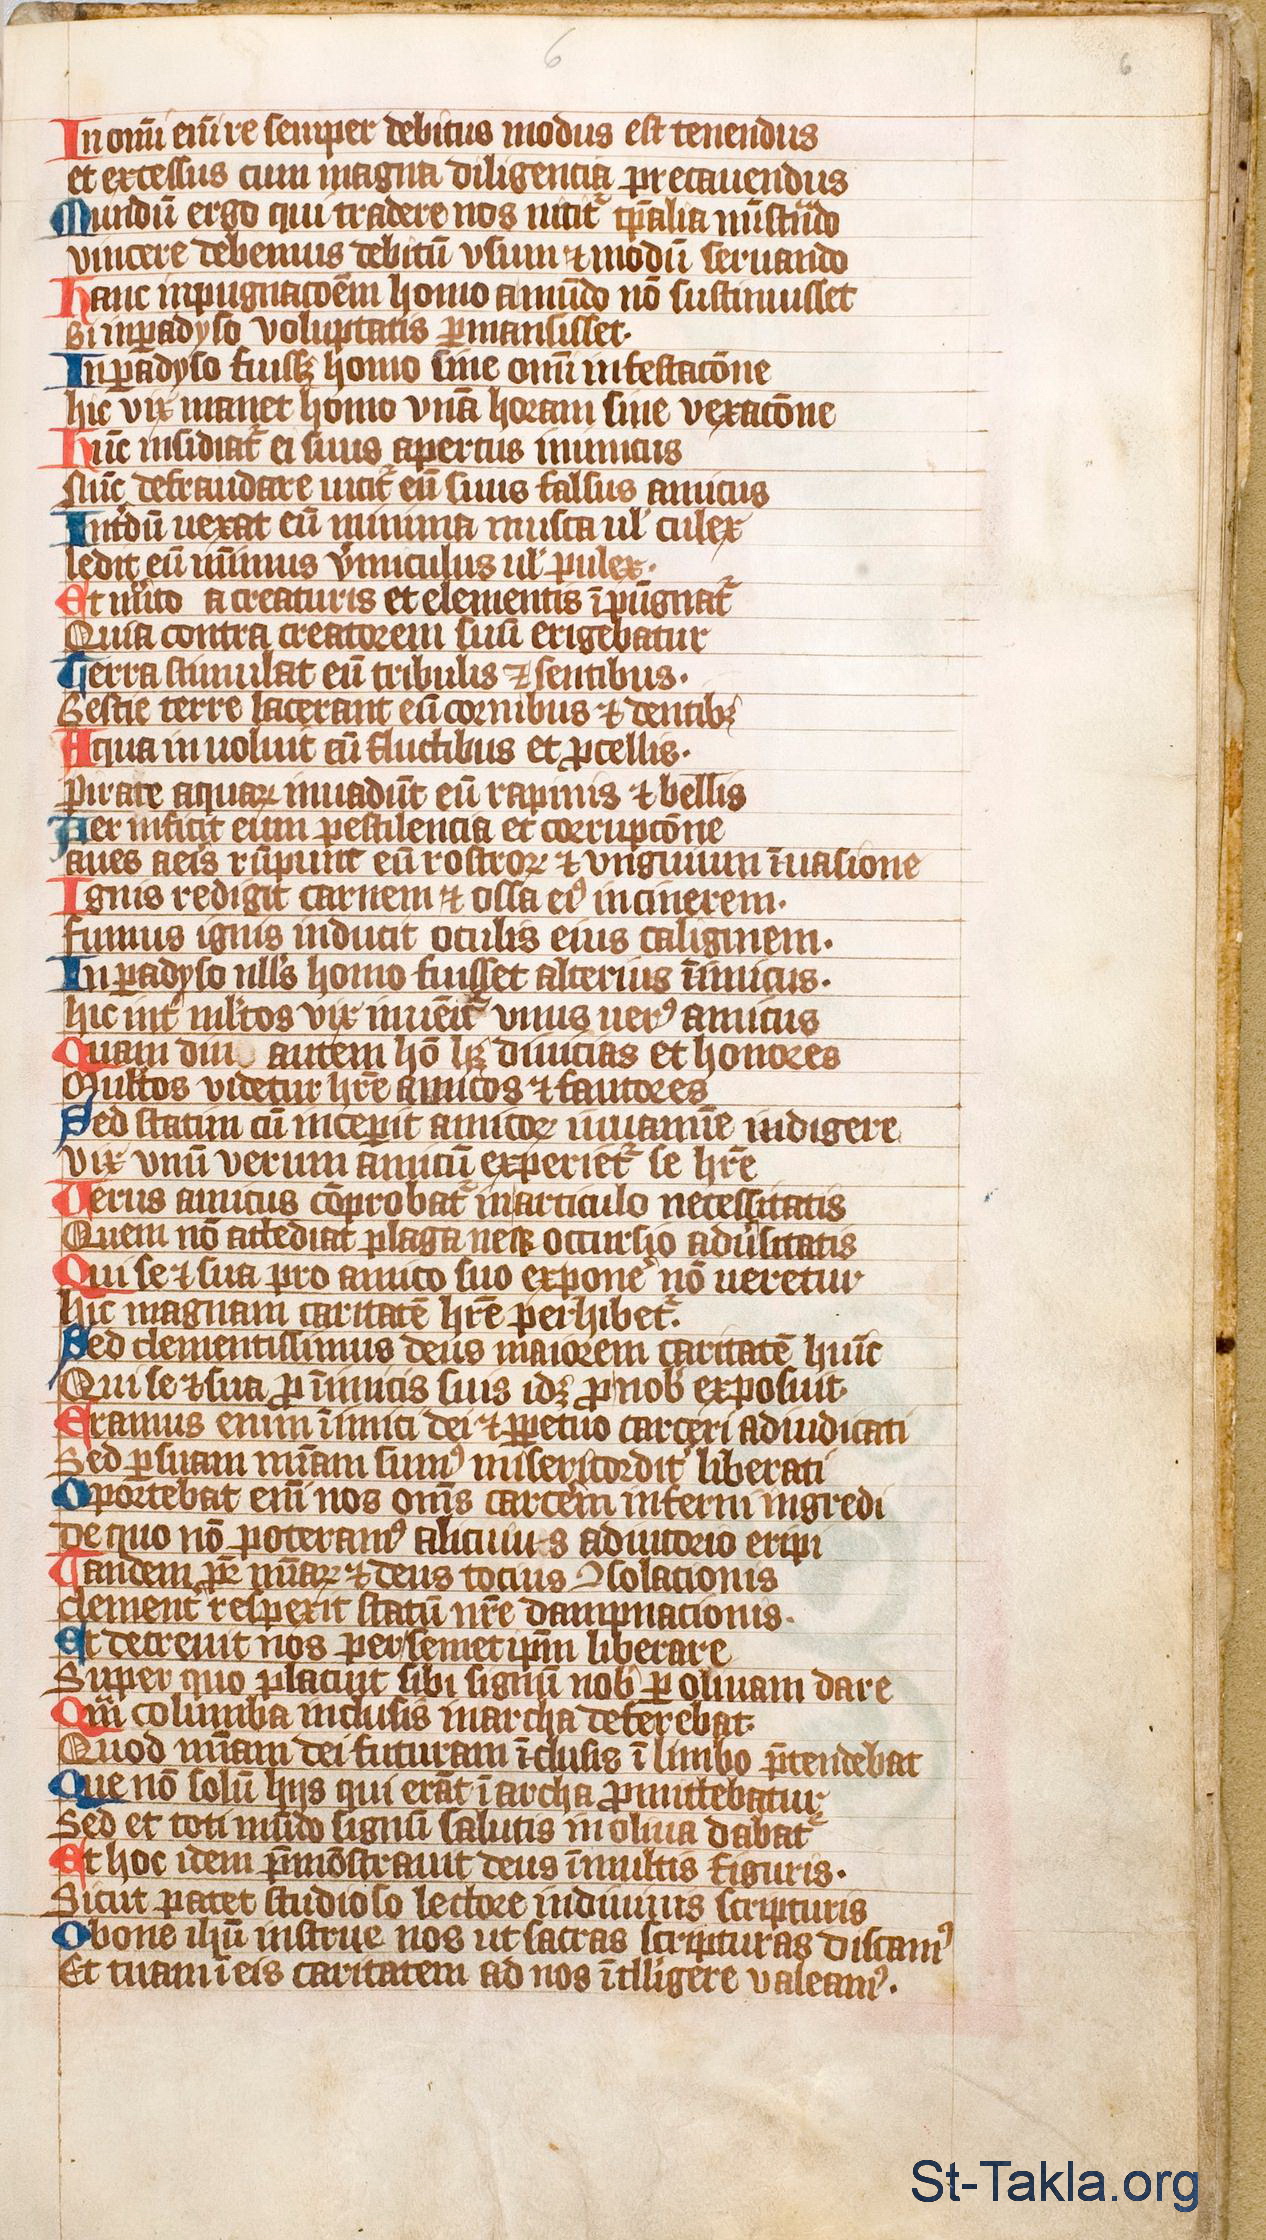 6
6
In om̄i eni̅ re semper debitus modus est tenendus
et excessus cum magna diligencia precauendus
Mundū ergo qui tradere nos nitit᷑
vincere debemus debitū vsum ⁊ modū seruando
Hanc inpugnacōem homo a mūdo nō sustinuisset
Si in ꝑadyso voluptatis ꝑmansisset.
In ꝑadyso fuissꝫ homo sine om̄i infestacōne
hic vix manet homo vnā horam sine vexacōne
Nūc insidiat᷑ ei suus apertus inimicus
Nūc defraudare nitit᷑ eū suus falsus amicus
Intᵉdū uexat eū minima musca ul' culex
ledit eū mīmus v̓miculus ul' pulex.
Et mᵉito a creaturis et elementis īpugnat᷑
Quia contra creatorem suū erigebatur
Terra stimulat eū tribulis ⁊ sentibus.
Bestie terre lacerant eū cornibus ⁊ dentibꝫ
Aqua in uoluit eū fluctibus et ꝓcellis.
Pirate aquaꝝ inuadūt eū rapinis ⁊ bellis
Aer inficit eum pestilencia et corrupcōne
aues aeis rūpunt eū rostroꝝ ⁊ vnguium īuasione
Ignis redigit carnem ⁊ ossa eiꝰ in cinerem.
fumus ignis inducit oculis eius caliginem.
In ꝑadyso nll's homo fuisset alterius īimicus.
hic int̓ ml'tos vix inuēit᷑ vnus uerꝰ amicus
Quam diu autem hō hꝫ diuicias et honores
Mul'tos videtur hr̄e amicos ⁊ fautores
Sed statim cū incepit amicoꝝ iuuamīe indigere
vix vnū verum amicū experiet᷑ se hr̄e
Verus amicus cōprobat᷑ in articulo necessitatis
Quem nō attediat plaga neqꝫ occursio adu̓sitatis
Qui se ⁊ sua pro amico suo expone̓ nō ueretur
hic magnam caritatē hr̄e perhibet᷑.
Sed clementissimus deus maiorem caritatē huīc
Qui se ⁊ sua ꝓ īimicis suis idꝫ ꝓ nob' exposuit
Eramus enim īimici dei ⁊ ꝑpetuo carceri adiudicati
Sed ꝑ suam mīam sumꝰ misericordit̓ liberati
Oportebat eni̅ nos om̄s carcēm inferni ingredi
De quo nō poteramꝰ alicuius adiutorio eripi
Tandem pr̄ mīaꝝ ⁊ deus tocius ꝯsolacionis
clement̓ respexit statū nr̄e dampnacionis.
Et decreuit nos per semet ip̄m liberare
Super quo placuit sibi signū nob' ꝑ oliuam dare
Qm̄ columba inclusis in archa deferebat.
Quod mīam dei futuram īclusis ī limbo p̄tendebat
Que nō solū hijs qui erāt ī archa ꝓmittebatur
Sed et toti mūdo signū salutis in oliua dabat᷑
Et hoc idem p̄mōstrauit deus ī multis figuris.
Sicut patet studioso lectore in diuinis scripturis
O bone ih̄u instrue nos ut sacras scripturas discamꝰ
Et tuam ī eis caritatem ad nos ītelligere valeamꝰ.
St-Takla.org